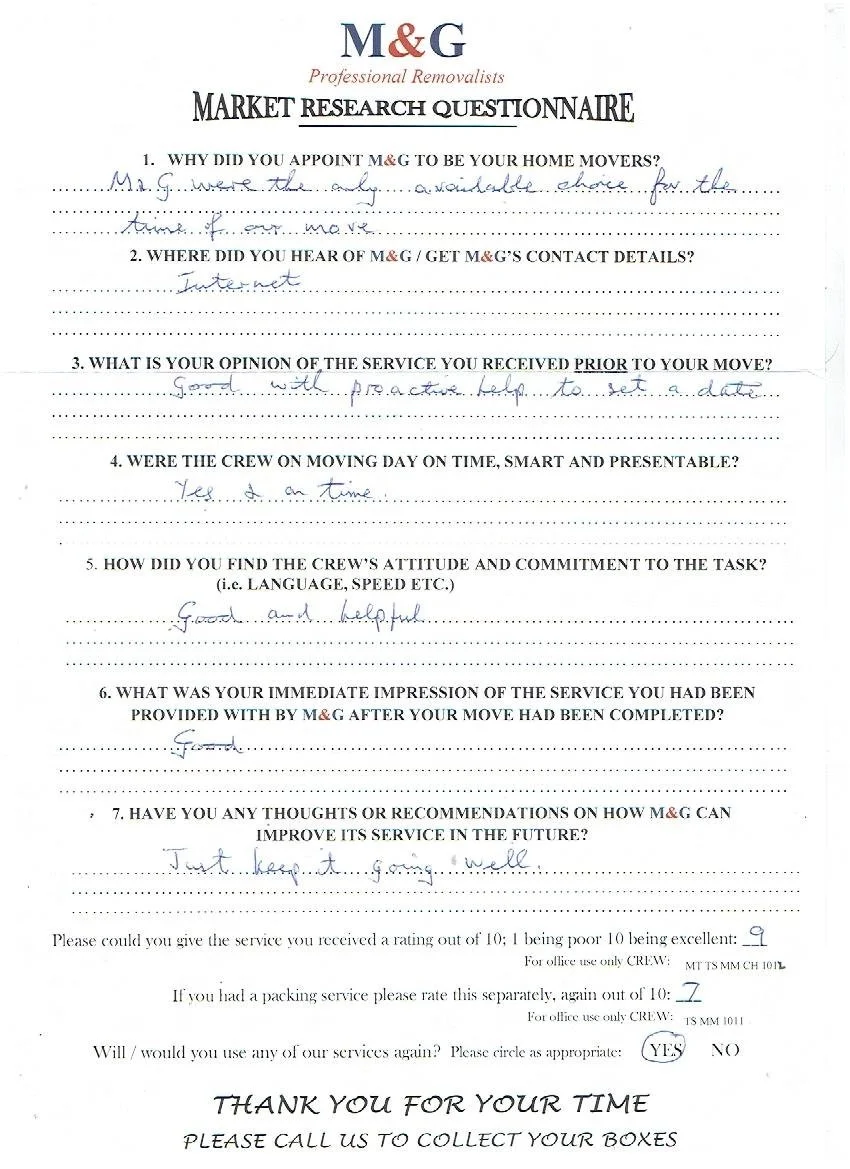 M&G
Professional Removalists
MARKET RESEARCH QUESTIONNAIRE
1. WHY DID YOU APPOINT M&G TO BE YOUR HOME MOVERS?
M&G were the only available choice for the
time of our move
2. WHERE DID YOU HEAR OF M&G / GET M&G'S CONTACT DETAILS?
Internet
3. WHAT IS YOUR OPINION OF THE SERVICE YOU RECEIVED PRIOR TO YOUR MOVE?
Good with proactive help to set a date
4. WERE THE CREW ON MOVING DAY ON TIME, SMART AND PRESENTABLE?
Yes & on time.
5. HOW DID YOU FIND THE CREW'S ATTITUDE AND COMMITMENT TO THE TASK?
(i.e. LANGUAGE, SPEED ETC.)
Good and helpful
6. WHAT WAS YOUR IMMEDIATE IMPRESSION OF THE SERVICE YOU HAD BEEN
PROVIDED WITH BY M&G AFTER YOUR MOVE HAD BEEN COMPLETED?
Good
7. HAVE YOU ANY THOUGHTS OR RECOMMENDATIONS ON HOW M&G CAN
IMPROVE ITS SERVICE IN THE FUTURE?
Just keep it going well.
Please could you give the service you received a rating out of 10; 1 being poor 10 being excellent: 9
For office use only CREW: MT TS MM CH 1012
If you had a packing service please rate this separately, again out of 10: 7
For office use only CREW: TS MM 1011
Will / would you use any of our services again? Please circle as appropriate: YES NO
THANK YOU FOR YOUR TIME
PLEASE CALL US TO COLLECT YOUR BOXES